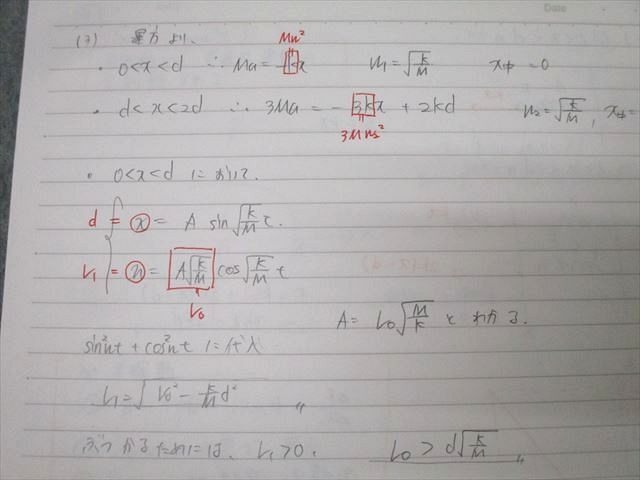 Date
(3) 運方より、
Mn²
・0<x<d ∴ Ma = -kx n₁=√(k/M) x中=0
・d<x<2d ∴ 3Ma = -3kx + 2kd n₂=√(k/M), x中=
3Mn₂²
・0<x<d において、
d = x = A sin√(k/M)t.
V₁ = v = A√(k/M) cos√(k/M)t
V₀
A = V₀√(M/k) とわかる.
sin²nt + cos²nt に代入
V₁=√(V₀² - (k/M)d²) 〃
ぶつかるためには、V₁>0. V₀ > d√(k/M) 〃